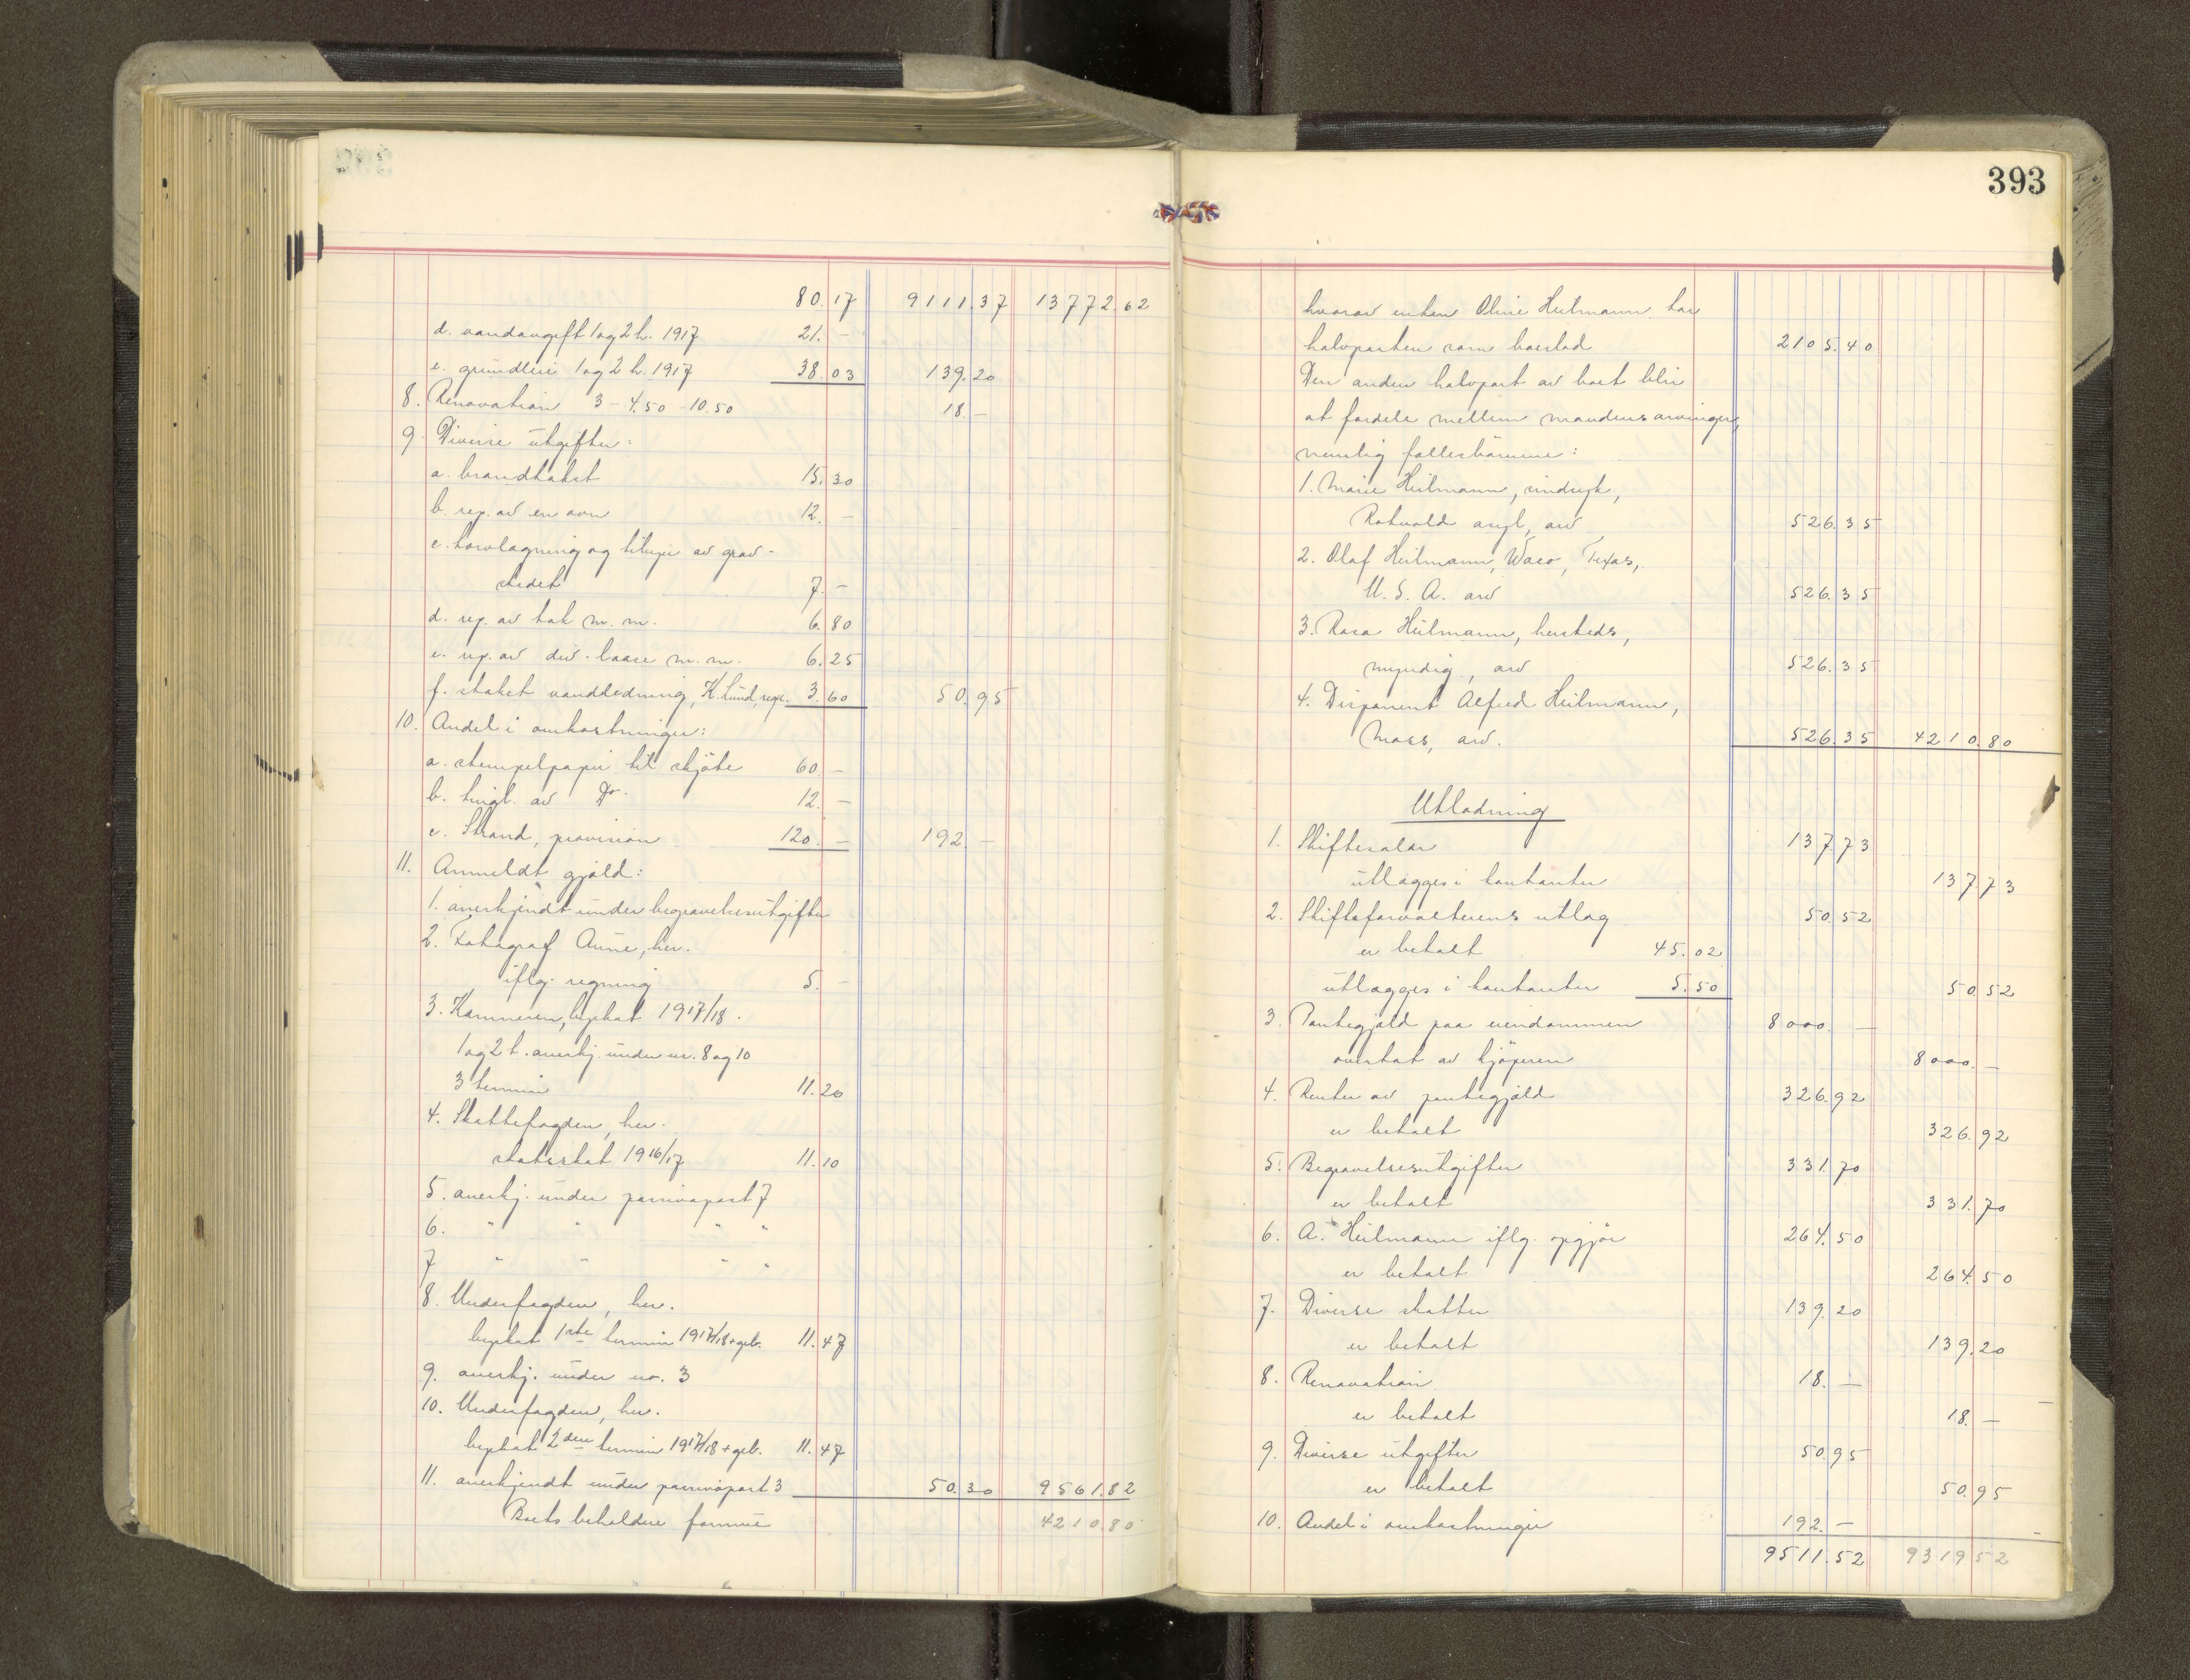 80.17 9111.37 13772.62
d. vandavgift 1 og 2 h. 1917 21. –
e. grundleie 1 og 2 h. 1917 38.03 139.20
8. Renovation 3 – 4.50 – 10.50 18 –
9. Diverse utgifter:
a. brandtakst 15.30
b. rep. av en ovn 12. –
c. torvlagning og tilsyn av grav-
stedet 7. –
d. rep. av tak m. m. 6.80
e. rep. av div. laase m. m. 6.25
f. staket vandledning, K. Lund, regn. 3.60 50.95
10. Andel i omkostninger:
a. stempelpapir til skjöte 60. –
b. tingl. av Do. 12. –
c. Strand, provision 120. – 192. –
11. Anmeldt gjæld:
1. anerkjendt under begravelsesutgifter
2. Fotograf Aune, her.
iflg. regning 5. –
3. Kæmneren, byskat 1917/18.
1 og 2 t. anerkj. under nr. 8 og 10
3 termin 11.20
4. Skattefogden, her.
statsskat 1916/17 11.10
5. anerkj. under passivapost 7
6. " " " "
7 " " " "
8. Underfogden, her.
byskat 1ste termin 1917/18 + geb. 11.47
9. anerkj. under no. 3
10. Underfogden, her.
byskat 2den termin 1917/18 + geb. 11.47
11. anerkjendt under passivapost 3 50.30 9561.82
Boets beholdne formue 4210.80
393
hvorav enken Oline Heilmann har
halvparten som boeslod 2105.40
Den anden halvpart av boet blir
at fordele mellem mandens arvinger,
nemlig fællesbarnene:
1. Marie Heilmann, sindsyk,
Rotvold asyl, arv 526.35
2. Olaf Heilmann, Waco, Texas,
U. S. A. arv 526.35
3. Rosa Heilmann, hersteds,
myndig, arv 526.35
4. Disponent Alfred Heilmann,
Moss, arv. 526.35 4210.80
Utlodning
1. Skiftesalær 137.73
utlægges i kontanter 137.73
2. Skifteforvalterens utlæg 50.52
er betalt 45.02
utlægges i kontanter 5.50 50.52
3. Pantegjæld paa eiendommen 8000. –
overtat av kjøperen 8000. –
4. Renter av pantegjæld 326.92
er betalt 326.92
5. Begravelsesutgifter 331.70
er betalt 331.70
6. A. Heilmann iflg. opgjör 264.50
er betalt 264.50
7. Diverse skatter 139.20
er betalt 139.20
8. Renovation 18. –
er betalt 18. –
9. Diverse utgifter 50.95
er betalt 50.95
10. Andel i omkostninger 192. –
9511.52 9319.52